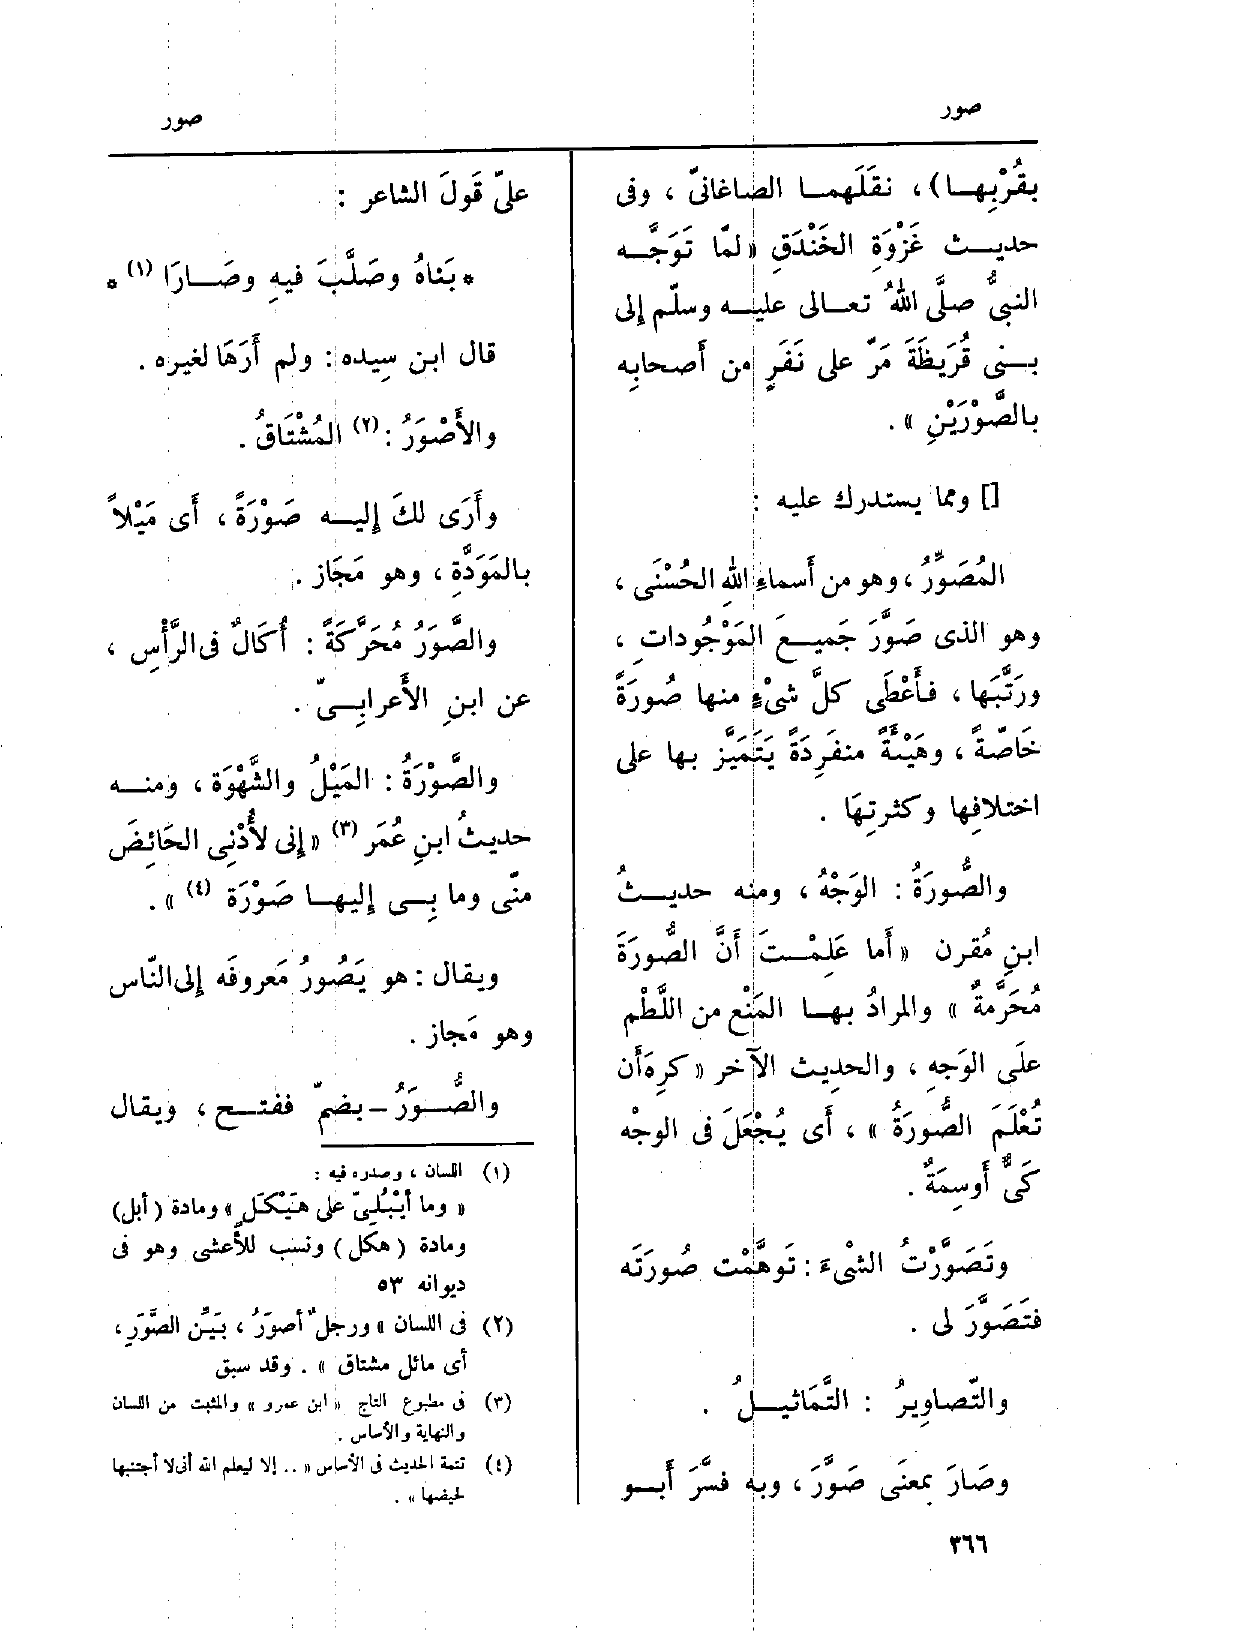 صور
صور
بقُرْبِهـا)، نقَلَهمـا الصاغانىّ ، وفى
حديـث غَزْوَةِ الخَنْدَقِ «لمّا تَوَجَّـه
النبىُّ صلَّى اللهُ تعـالى عليـه وسلّم إلى
بـنى قُرَيظَةَ مَرّ على نَفَرٍ من أصحابِه
بالصَّوْرَيْنِ » .
[] ومما يستدرك عليه :
المُصَوِّرُ ، وهو من أسماءِ اللهِ الحُسْنَى ،
وهو الذى صَوَّرَ جَميـعَ المَوْجُوداتِ ،
ورَتَّبَها ، فأَعْطَى كلَّ شىْءٍ منها صُورَةً
خَاصّةً ، وهَيْئَةً منفَرِدَةً يَتَمَيَّز بها على
اختلافِها وكثرتِهَا .
والصُّورَةُ : الوَجْهُ ، ومنه حديـثُ
ابنِ مُقرن «أَما عَلِمْـتَ أَنَّ الصُّورَةَ
مُحَرَّمةٌ » والمرادُ بهـا المَنْع من اللَّطْم
علَى الوَجهِ ، والحديث الآخر «كرِه أَن
تُعْلَمَ الصُّورَةُ » ، أَى يُجْعَلَ فى الوجْه
كَىٌّ أَوسِمَةٌ .
وتَصَوَّرْتُ الشىْءَ : تَوهَّمْت صُورَتَه
فتَصَوَّرَ لى .
والتّصاوِيرُ : التَّمَاثيـلُ .
وصَارَ بمعنَى صَوَّرَ ، وبه فسَّرَ أَبـو
علىّ قَولَ الشاعر :
* بَناهُ وصَلَّبَ فيهِ وصَـارَا (١) *
قال ابن سِيده : ولم أَرَهَا لغيره .
والأَصْوَرُ : (٢) المُشْتَاقُ .
وأَرَى لكَ إليـه صَوْرَةً ، أَى مَيْلاً
بالمَوَدَّةِ ، وهو مَجَاز .
والصَّوَرُ مُحَرَّكَةً : أُكَالٌ فى الرَّأْسِ ،
عن ابنِ الأَعرابِـىّ .
والصَّوْرَةُ : المَيْلُ والشَّهْوَة ، ومنـه
حديثُ ابنِ عُمَر (٣) «إنى لأُدْنِى الحَائِضَ
منّى وما بِـى إليهـا صَوْرَة (٤) » .
ويقال : هو يَصُورُ مَعروفَه إلى النّاس
وهو مَجاز .
والصُّـوَرُ ـ بضمّ ففتـح ، ويقال
(١) اللسان ، وصدره فيه :
« وما أيْبُلِىّ على هَيْكَلٍ » ومادة (أبل)
ومادة (هكل) ونسب للأعشى وهو فى
ديوانه ٥٣
(٢) فى اللسان « ورجلٌ أصورُ ، بَيِّن الصَّوَرِ ،
أى مائل مشتاق » . وقد سبق
(٣) فى مطبوع التاج «ابن عمرو» والمثبت من اللسان
والنهاية والأساس .
(٤) تتمة الحديث فى الأساس « .. إلا ليعلم الله أنى لا أجتنبها
لحيضها » .
٣٦٦